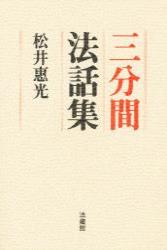 三分間
法話集
松井惠光
法藏館